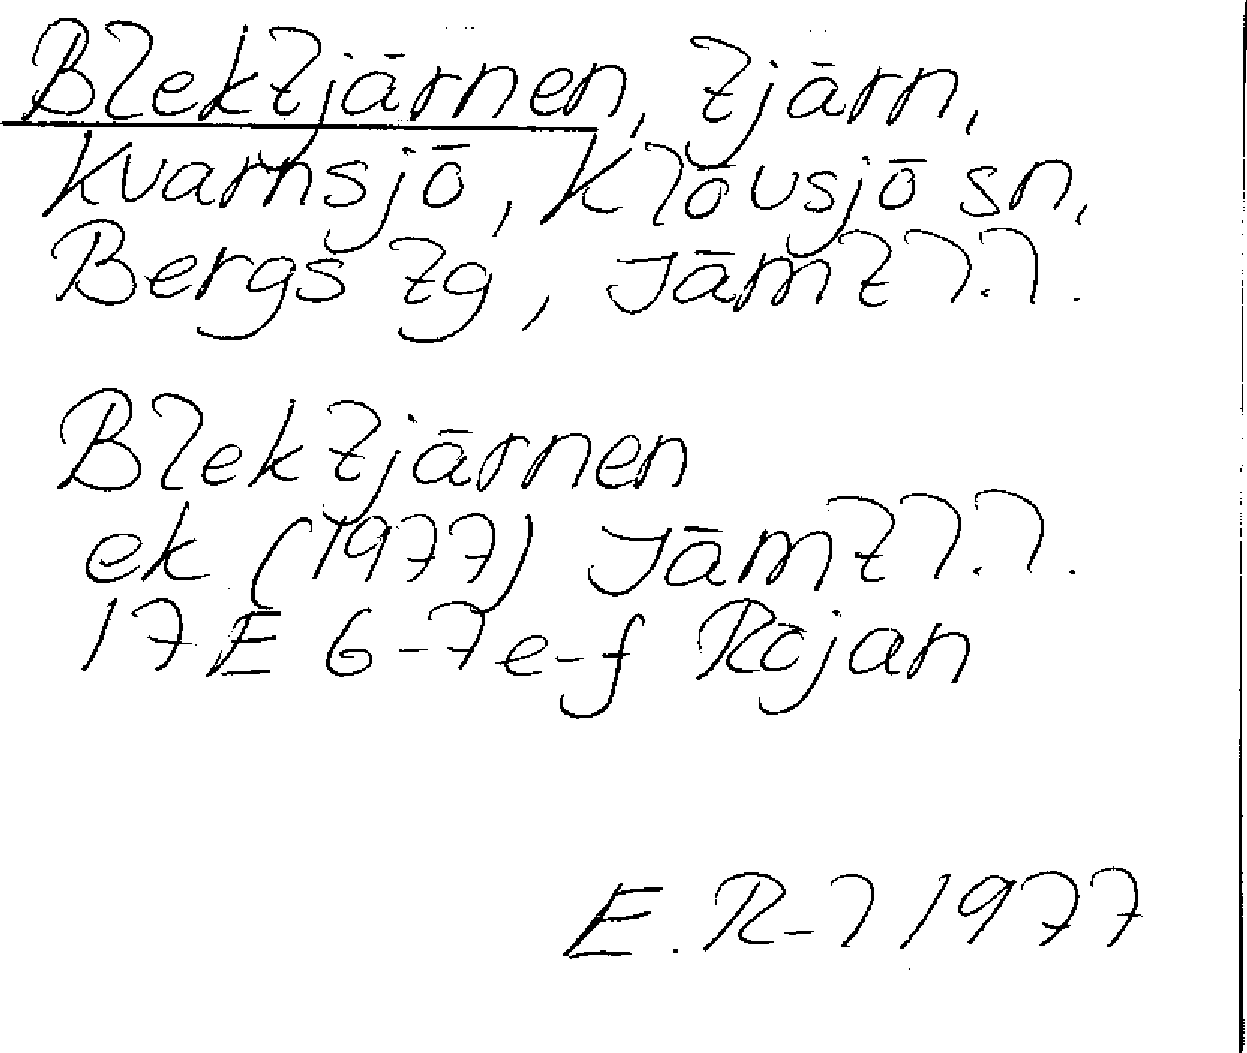 Blektjärnen, tjärn,
Kvarnsjö, Klövsjö sn,
Bergs tg, Jämtl.l.
Blektjärnen
ek (1977) Jämtl.l.
17E 6-7e-f Röjan
E. R-l 1977